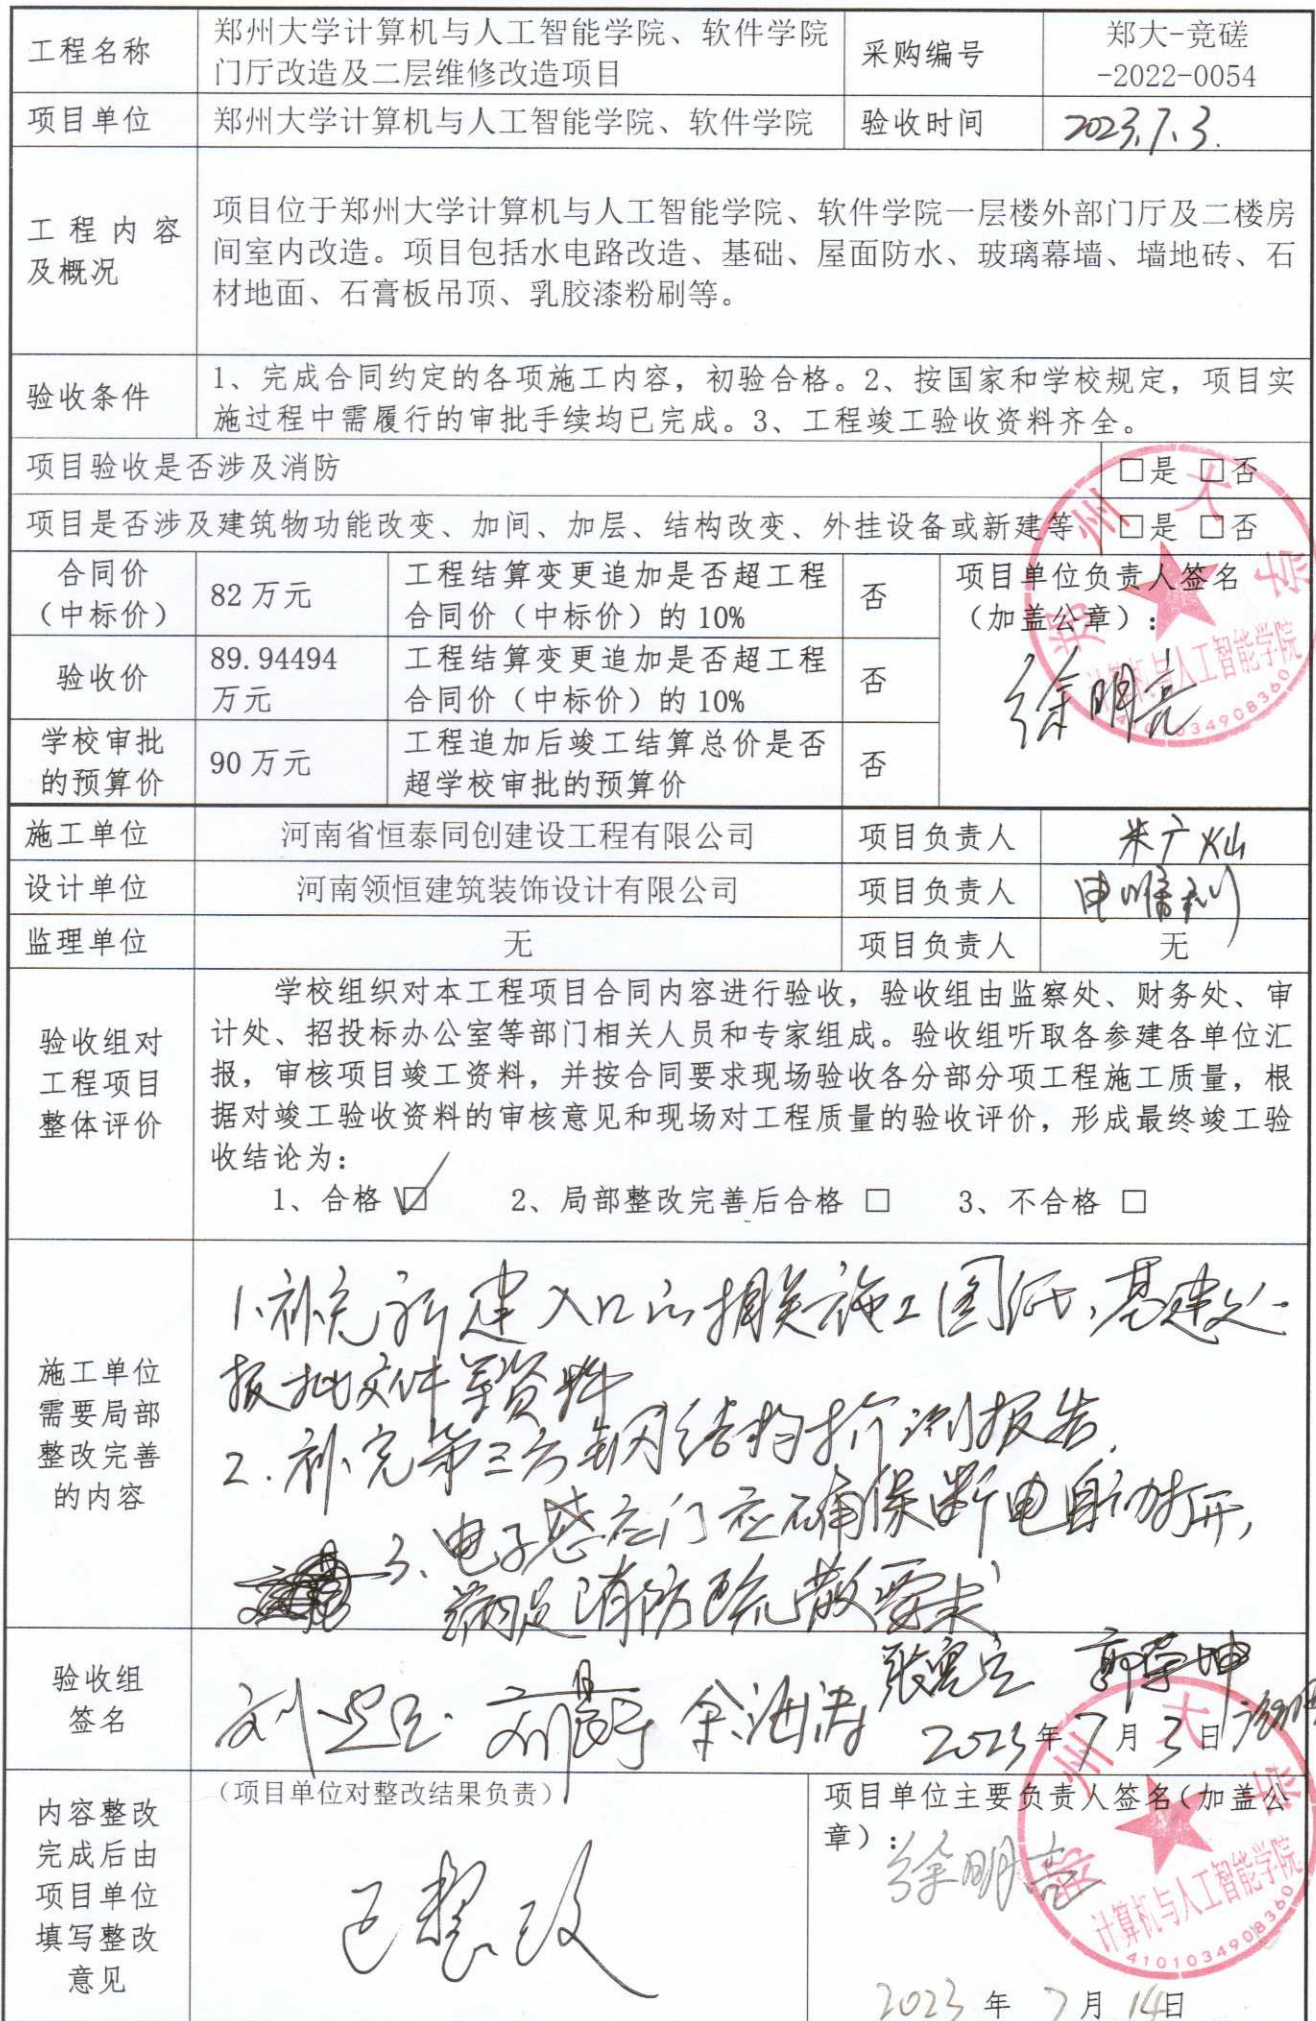 工程名称
郑州大学计算机与人工智能学院、软件学院
门厅改造及二层维修改造项目
采购编号
郑大-竞磋
-2022-0054
项目单位
郑州大学计算机与人工智能学院、软件学院
验收时间
2023.7.3.
工程内容
及概况
项目位于郑州大学计算机与人工智能学院、软件学院一层楼外部门厅及二楼房
间室内改造。项目包括水电路改造、基础、屋面防水、玻璃幕墙、墙地砖、石
材地面、石膏板吊顶、乳胶漆粉刷等。
验收条件
1、完成合同约定的各项施工内容，初验合格。2、按国家和学校规定，项目实
施过程中需履行的审批手续均已完成。3、工程竣工验收资料齐全。
项目验收是否涉及消防
□是 □否
项目是否涉及建筑物功能改变、加间、加层、结构改变、外挂设备或新建等
□是 □否
合同价
（中标价）
82万元
工程结算变更追加是否超工程
合同价（中标价）的10%
否
项目单位负责人签名
（加盖公章）：
徐明亮
郑州大学
计算机与人工智能学院
4101034908360
验收价
89.94494
万元
工程结算变更追加是否超工程
合同价（中标价）的10%
否
学校审批
的预算价
90万元
工程追加后竣工结算总价是否
超学校审批的预算价
否
施工单位
河南省恒泰同创建设工程有限公司
项目负责人
设计单位
河南领恒建筑装饰设计有限公司
项目负责人
监理单位
无
项目负责人
无
验收组对
工程项目
整体评价
学校组织对本工程项目合同内容进行验收，验收组由监察处、财务处、审
计处、招投标办公室等部门相关人员和专家组成。验收组听取各参建各单位汇
报，审核项目竣工资料，并按合同要求现场验收各分部分项工程施工质量，根
据对竣工验收资料的审核意见和现场对工程质量的验收评价，形成最终竣工验
收结论为：
1、合格 ☑ 2、局部整改完善后合格 □ 3、不合格 □
施工单位
需要局部
整改完善
的内容
1、补充新建入口的相关施工图纸，基建处
报批文件等资料
2.补充第三方钢结构检测报告.
3、电子感应门应确保断电自动打开，
满足消防疏散要求
验收组
签名
余海涛
2023年7月3日
内容整改
完成后由
项目单位
填写整改
意见
（项目单位对整改结果负责）
已整改
项目单位主要负责人签名(加盖公
章)：
徐明亮
郑州大学
计算机与人工智能学院
4101034908360
2023年7月14日